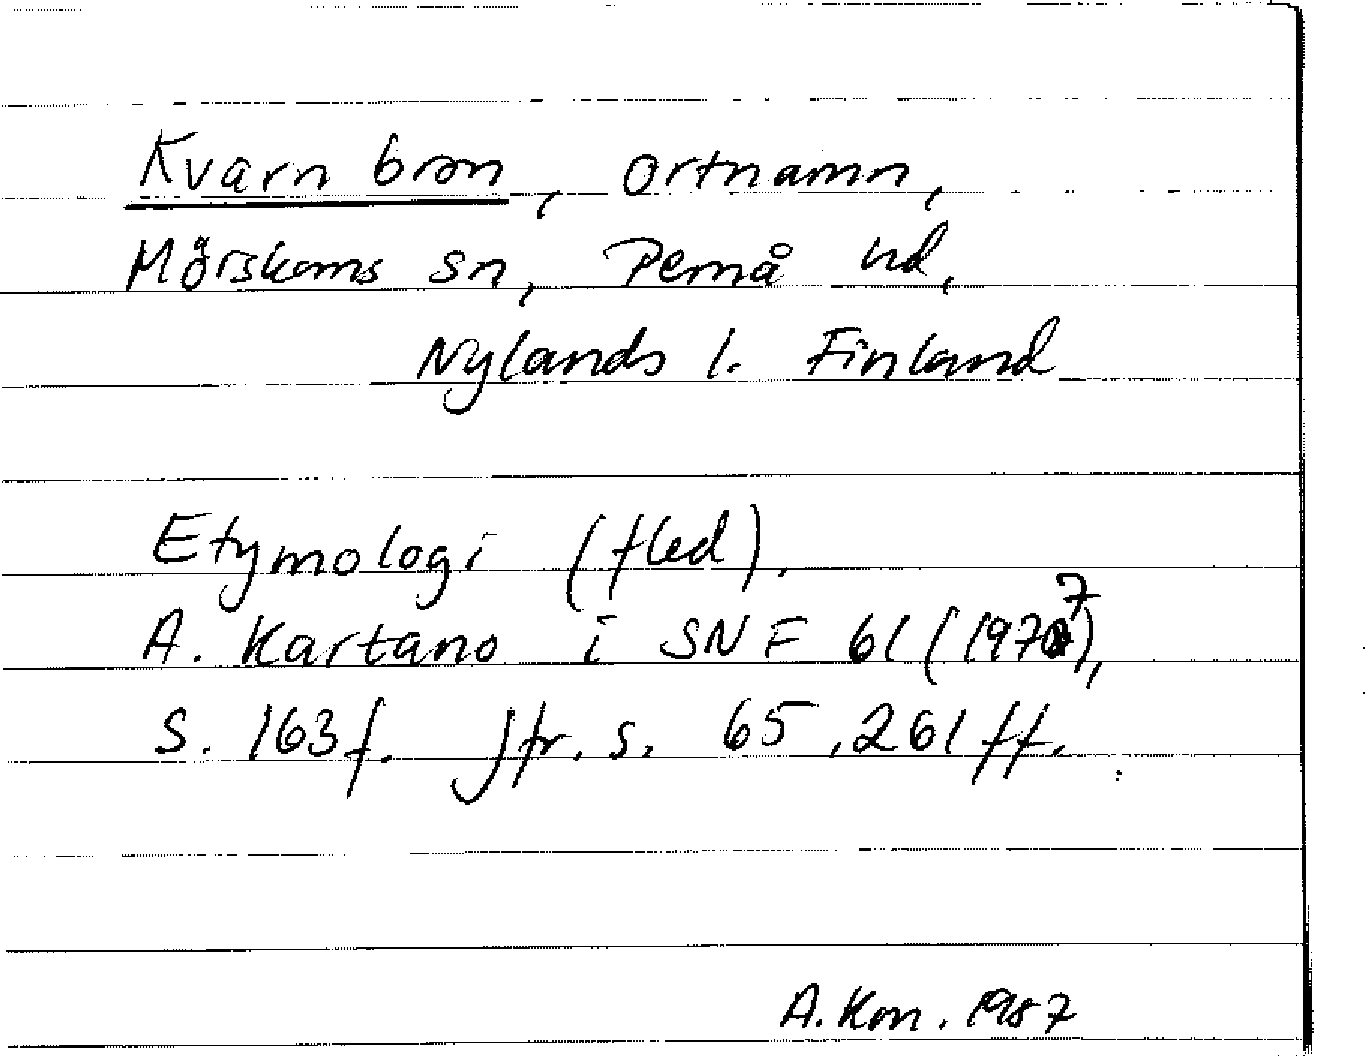 Kvarn bron, ortnamn,
Mörskoms sn, Pernå hd,
Nylands l. Finland
Etymologi (fled).
A. Kartano i SNF 61 (1977),
S. 163 f. Jfr. s. 65, 261 ff.
A. Kon. 1987